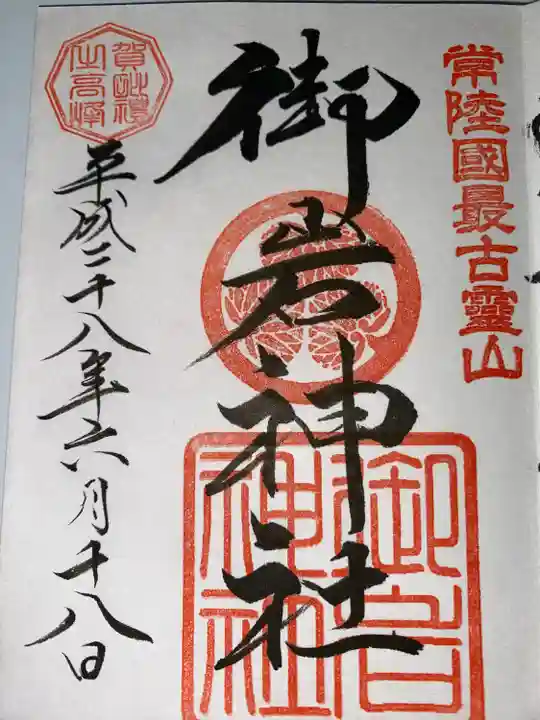 常陸國最古靈山
御岩神社
御岩
神社
賀毗禮
之高峰
平成二十八年六月十八日